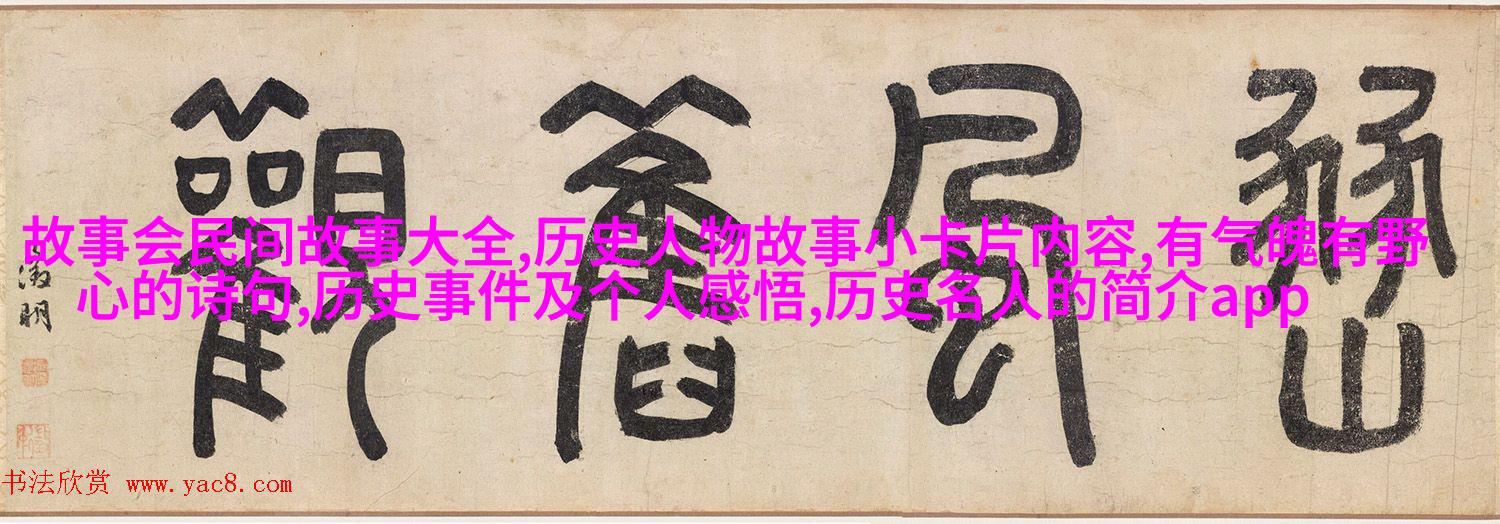 豳風舊觀
徵明
故事会民间故事大全,历史人物故事小卡片内容,有气魄有野
心的诗句,历史事件及个人感悟,历史名人的简介app
书法欣赏 www.yac8.com